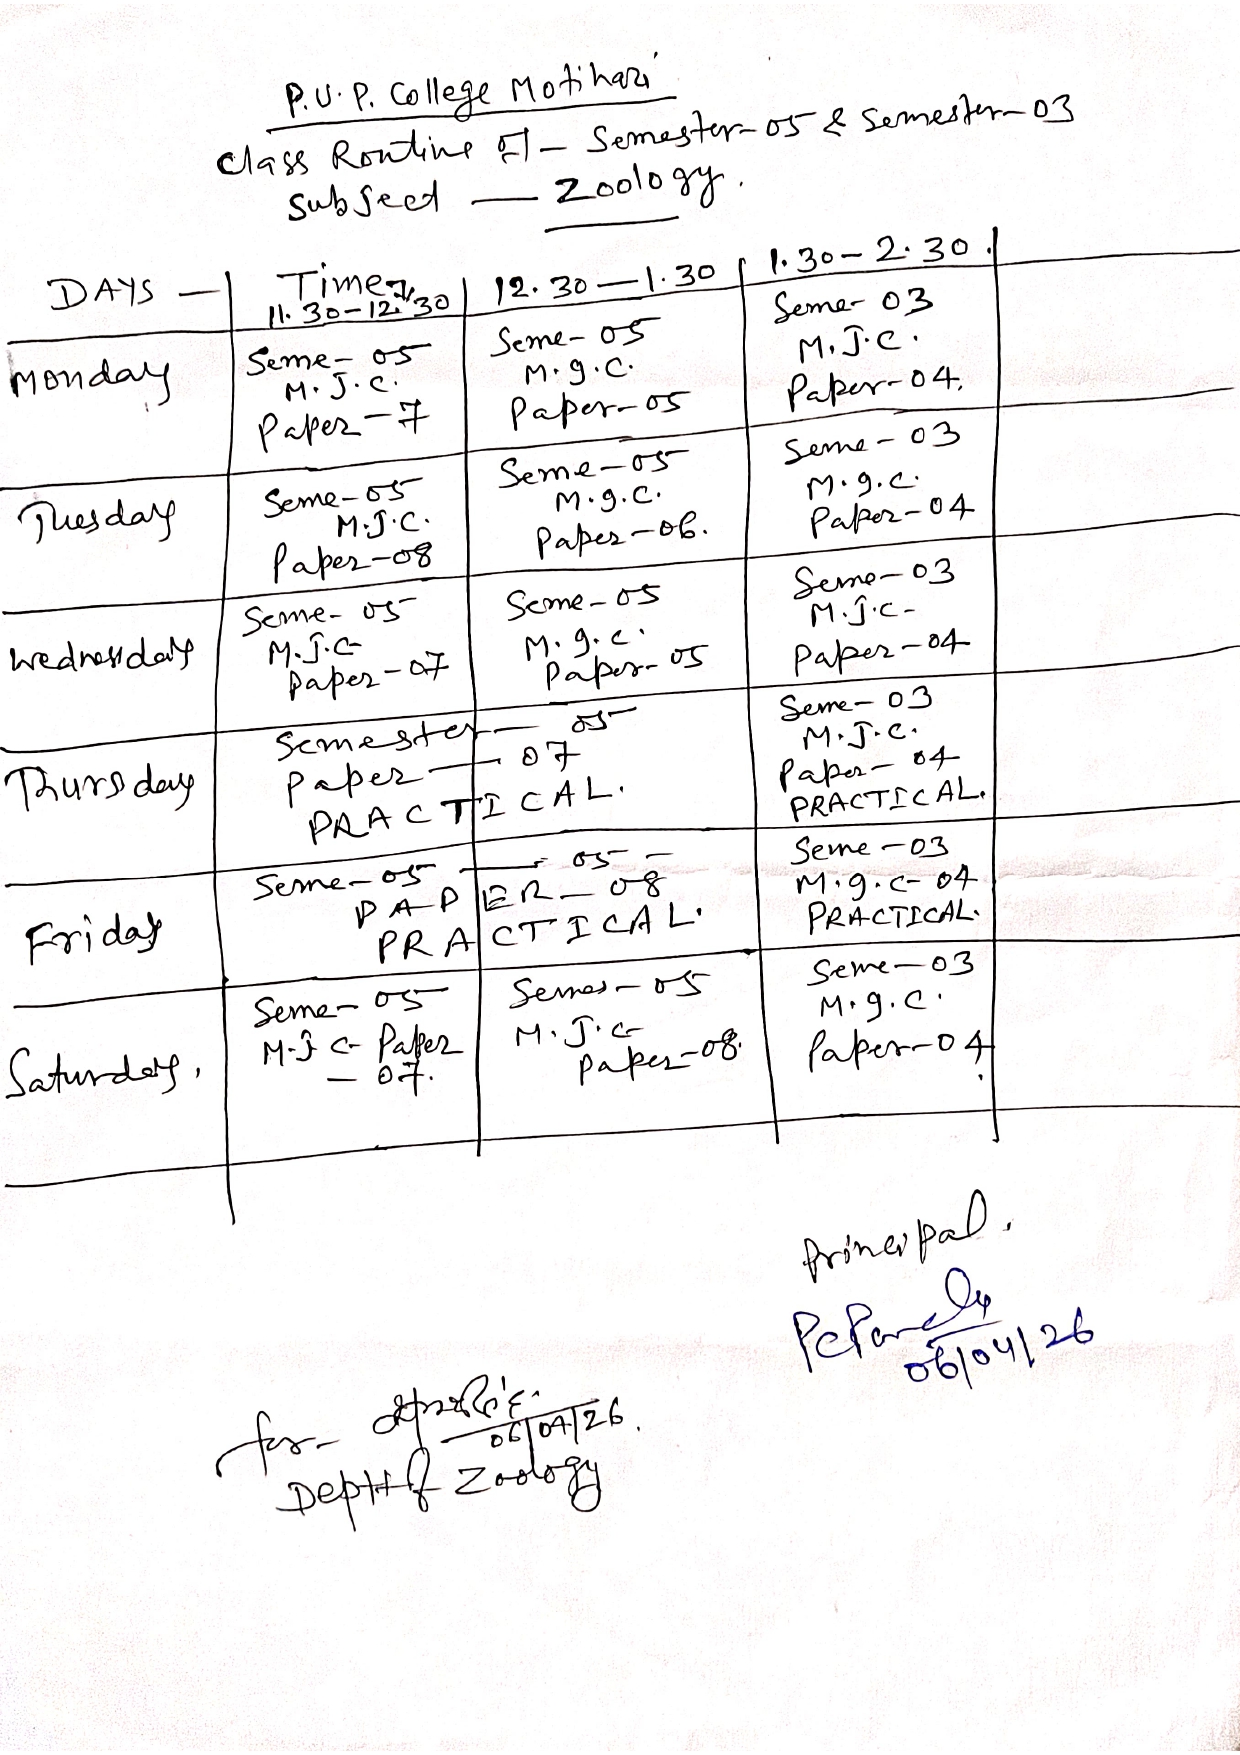 P.U.P. College Motihari
Class Routine of — Semester-05 & Semester-03
Subject — Zoology.
DAYS — Time 11.30-12.30 12.30-1.30 1.30-2.30.
Monday
Seme-05
M.J.C.
Paper-7
Seme-05
M.g.C.
Paper-05
Seme-03
M.J.C.
Paper-04.
Tuesday
Seme-05
M.J.C.
Paper-08
Seme-05
M.g.C.
Paper-06.
Seme-03
M.g.C.
Paper-04
Wednesday
Seme-05
M.J.C-
Paper-07
Seme-05
M.g.C.
Paper-05
Seme-03
M.J.C-
Paper-04
Thursday
Semester-05
Paper-07
PRACTICAL.
Seme-03
M.J.C.
Paper-04
PRACTICAL.
Friday
Seme-05 — 05 —
PAPER-08
PRACTICAL.
Seme-03
M.g.C-04
PRACTICAL.
Saturday.
Seme-05
M.J C- Paper
-07.
Semes-05
M.J.C-
Paper-08.
Seme-03
M.g.C.
Paper-04
Principal.
06/04/26
for-
06/04/26.
Deptt of Zoology